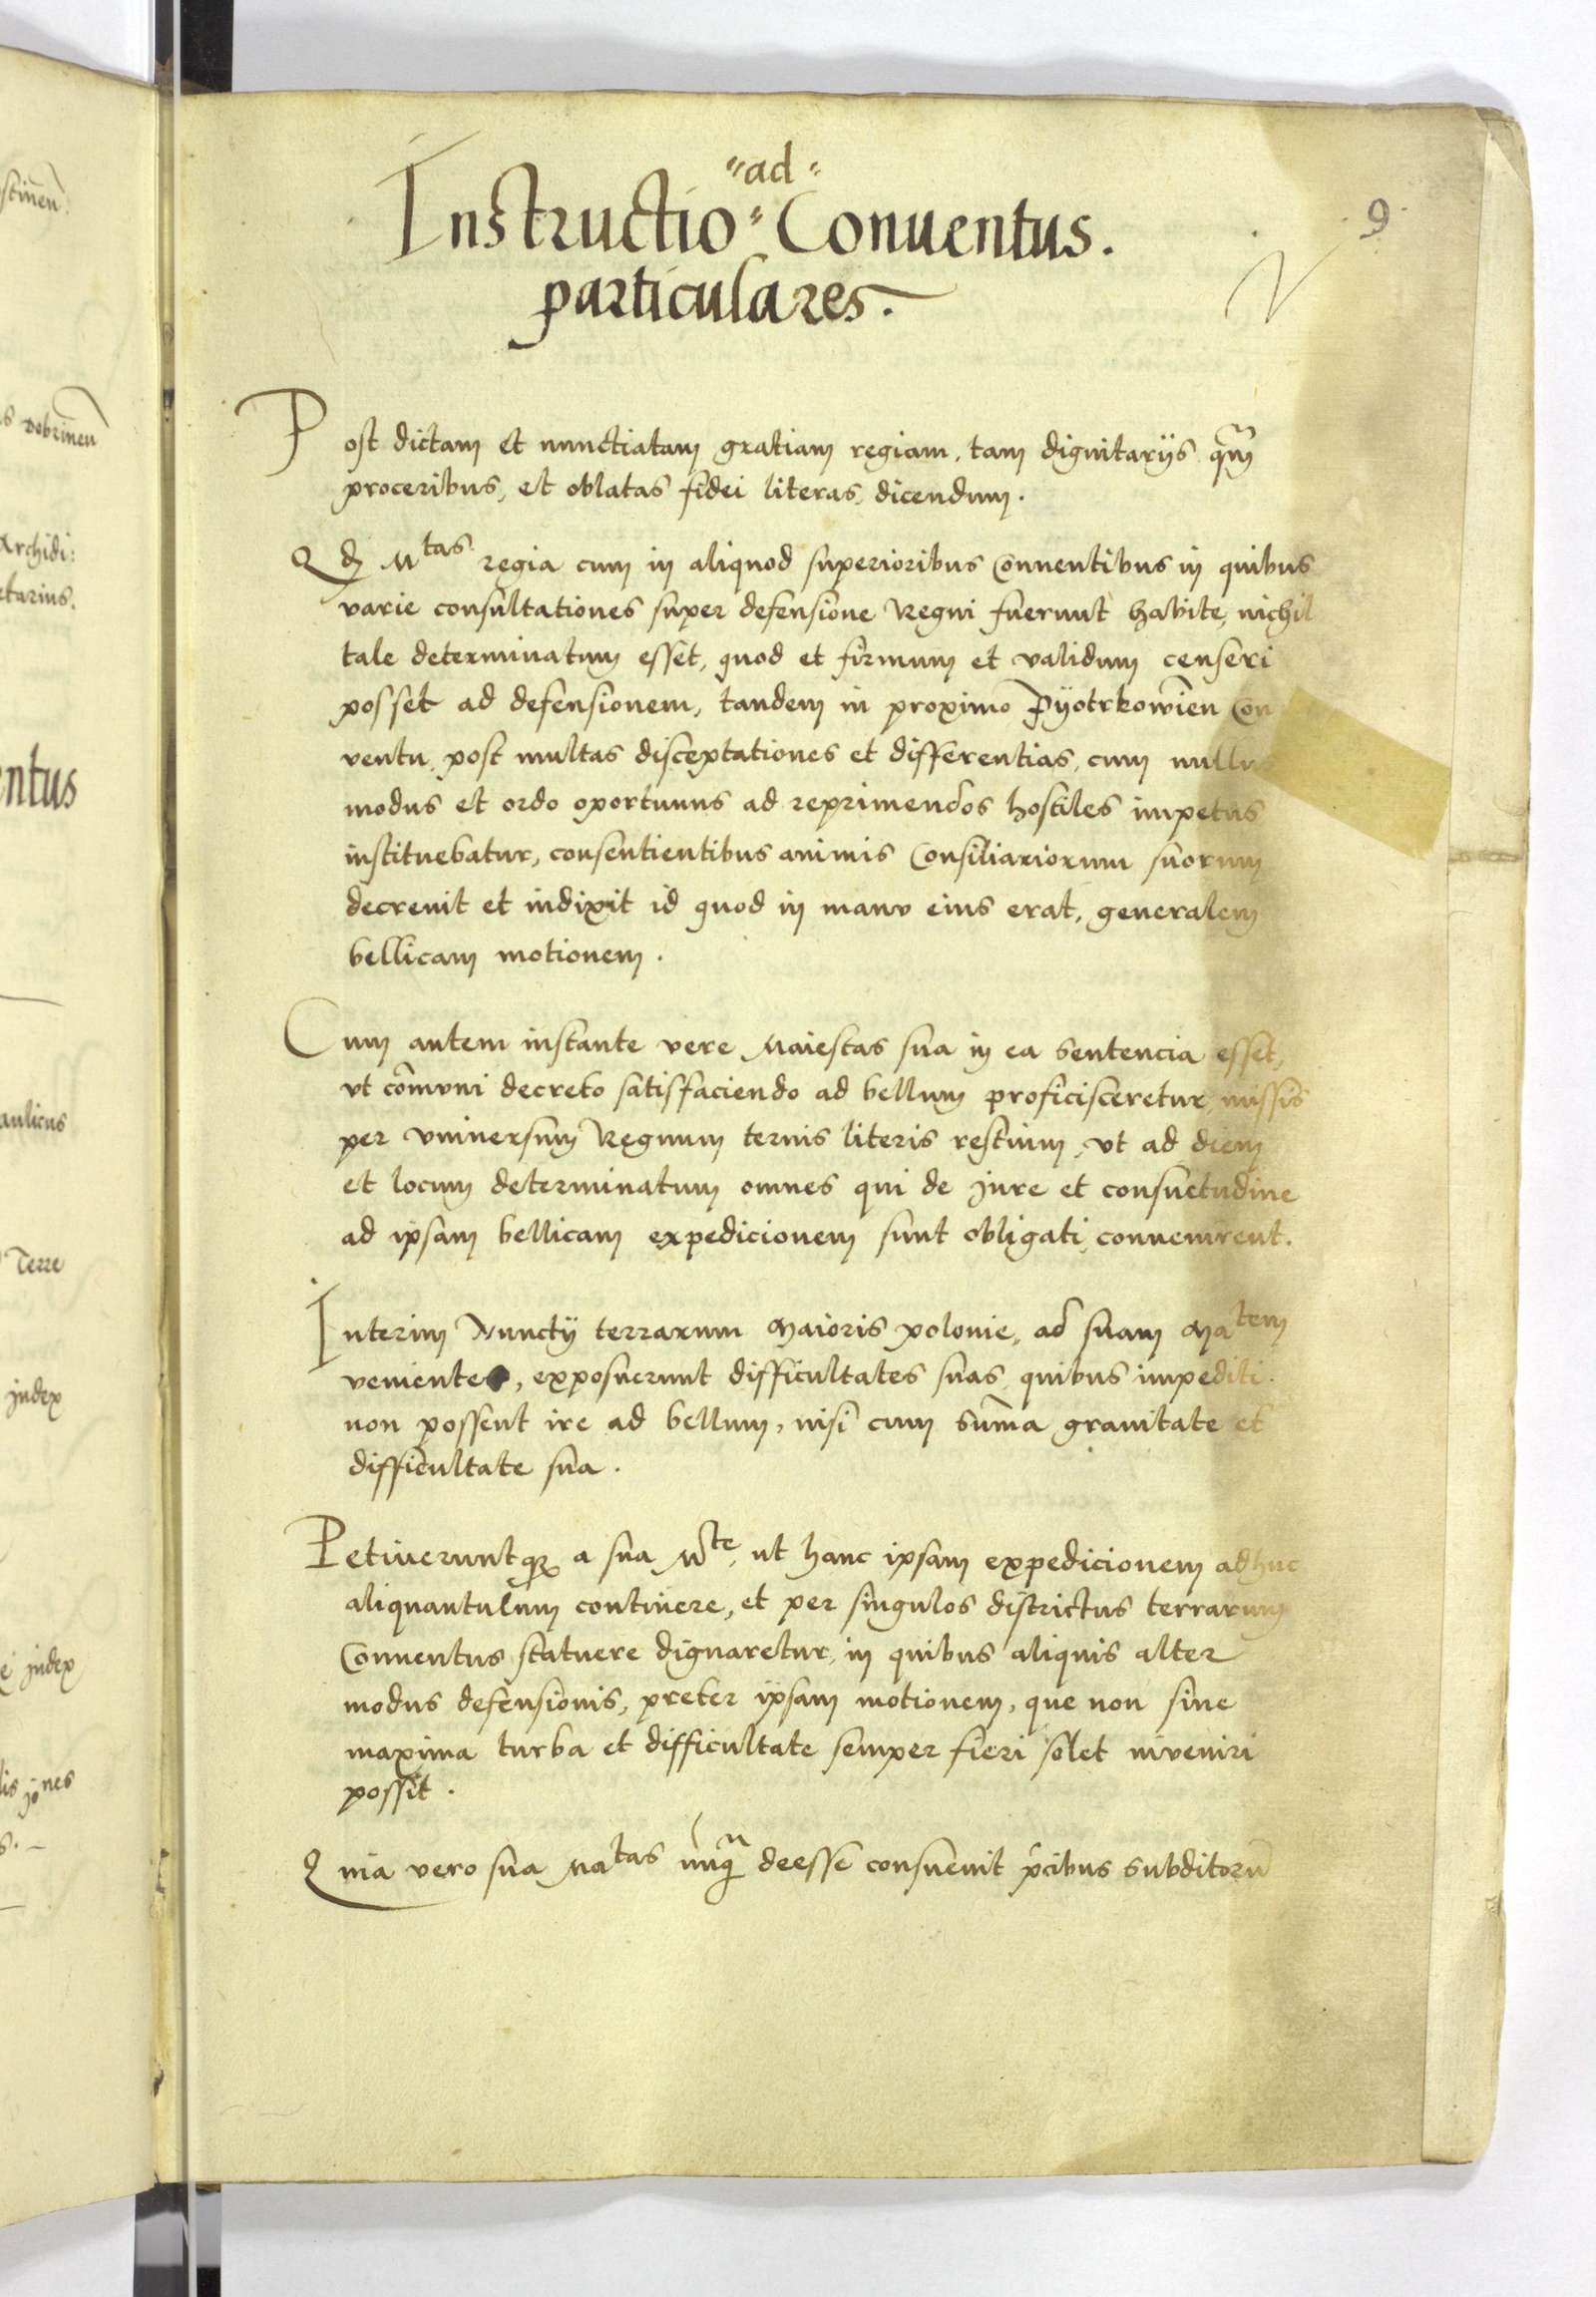 9
"ad"
Instructio Conuentus.
particulares.
Post dictam et nunctiatam gratiam regiam, tam dignitariis q̃m
proceribus, et oblatas fidei literas, dicendum.
Qd Mtas regia cum in aliquod superioribus Conuentibus in quibus
varie consultationes super defensione Regni fuerunt habite, nichil
tale determinatum esset, quod et firmum et validum censeri
posset ad defensionem, tandem in proximo Pyotrkowien̄ Con
ventu, post multas disceptationes et differentias, cum nullus
modus et ordo oportunus ad reprimendos hostiles impetus
instituebatur, consentientibus animis Consiliariorum suorum
decreuit et indixit id quod in manu eius erat, generalem
bellicam motionem.
Cum autem instante vere Maiestas sua in ea sentencia esset,
vt com̄vni decreto satisfaciendo ad bellum proficisceretur, missis
per vniuersum Regnum ternis literis restium, vt ad diem
et locum determinatum omnes qui de jure et consuetudine
ad ipsam bellicam expedicionem sunt obligati, conuenirent.
Interim Nunctij terrarum Maioris polonie, ad suam Matem
venientes, exposuerunt difficultates suas, quibus impediti
non possent ire ad bellum, nisi cum sum̄a grauitate et
difficultate sua.
Petiueruntq̃ a sua Mte, ut hanc ipsam expedicionem adhuc
aliquantulum continere, et per singulos districtus terrarum
Conuentus statuere dignaretur, in quibus aliquis alter
modus defensionis, preter ipsam motionem, que non sine
maxima turba et difficultate semper fieri solet inveniri
possit.
Quia vero sua Matas nūq̃ deesse consueuit p̄cibus subditorū
stinen̄.
s Dobrinen̄
Archidi:
etarius.
entus
aulicus
Terre
judex
e judex
lis jo nes
s.